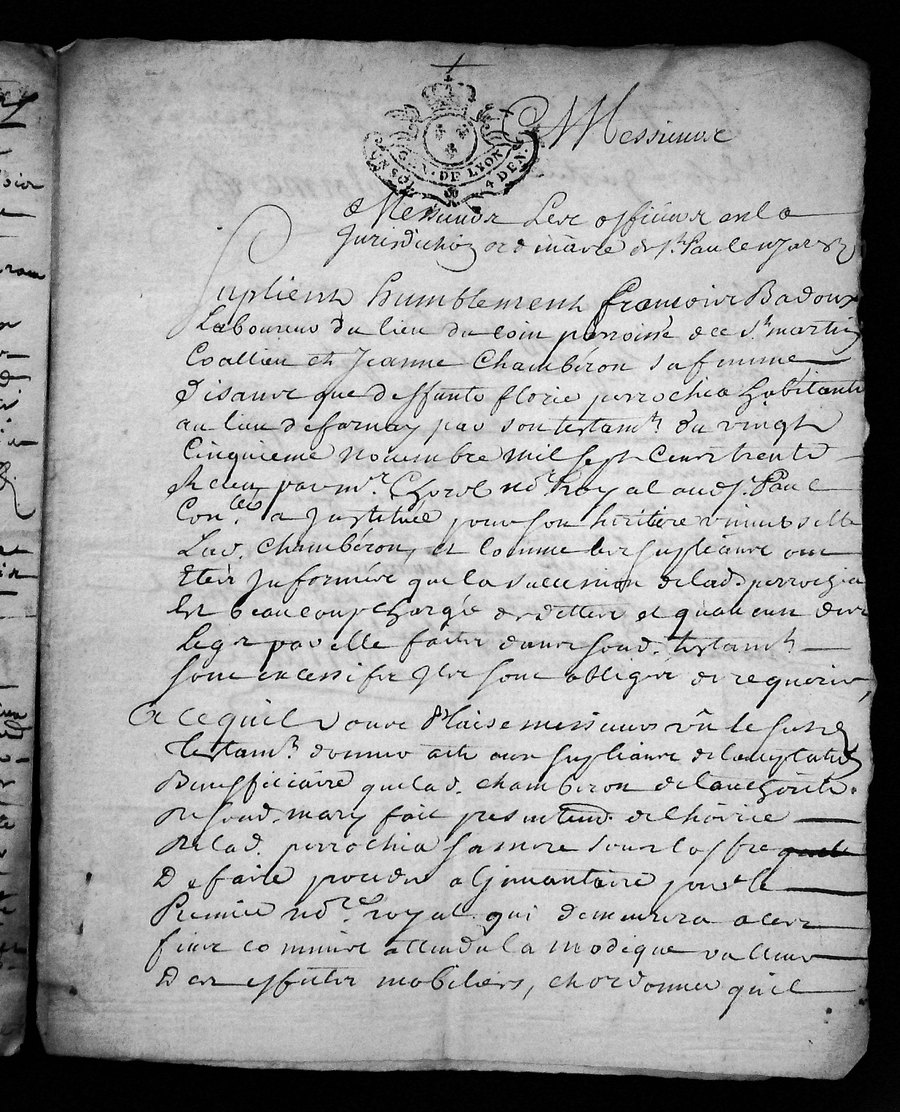 GEN. DE LYON
UN SOL 4 DEN.
A Messieurs
A Messieurs Les officiers en la
Jurisdiction ordinaire de St. Paul en Jarest
Suplient humblement francois Badoux
Laboureur du lieu du coin parroisse de St. martin
Coallieu et Jeanne Chambéron sa femme
Disants que deffunte florie perrochia habitante
au lieu de farnay par son testamt. du vingt
Cinquieme novembre mil sept Cent trente
Receu par me. Chorel nore. Royal aud. St. Paul
a Justituée pour son héritiere universelle
Lad. Chambéron, et comme les supliants ont
Etés Jnformés que la succession de lad. perrochia
Est beaucoup Chargée de dettes et qu'aucuns des
Legs par elle faits dans sond. testamt.
sont excessifs Jls sont obligés de requerir,
A Ce qu'il vous Plaise messieurs vû le susd.
testamt. donner acte aux supliants de l'acceptation
Beneficiaire que lad. chambéron de l'authorité
de sond. mary fait presentemt. de l'hoirie
de lad. perrochia sa mere sous l'offre
De faire proceder a l'Jnvantaire par le
Premier nore. royal qui demeurera a ces
fins commis attendu la modique valleur
Des effets mobiliers, et ordonner qu'il